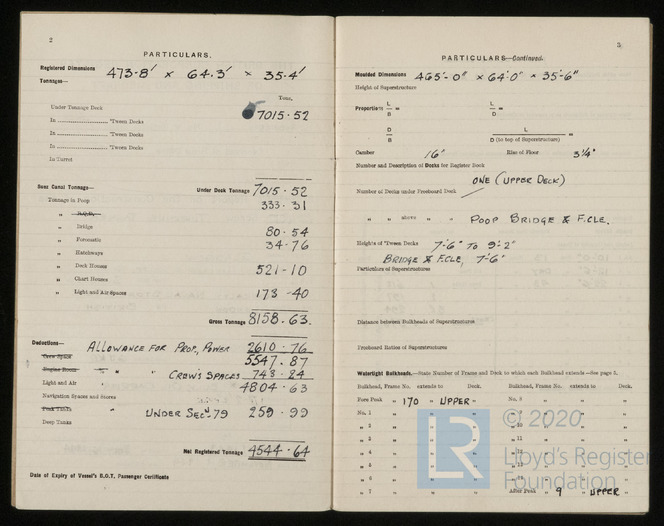 2
PARTICULARS.
Registered Dimensions 473·8' × 64·3' × 35·4'
Tonnages—
Tons.
Under Tonnage Deck 7015·52
In .................... 'Tween Decks
In .................... 'Tween Decks
In .................... 'Tween Decks
In Turret
Suez Canal Tonnage— Under Deck Tonnage 7015·52
Tonnage in Poop 333·31
„
„ Bridge 80·54
„ Forecastle 34·76
„ Hatchways
„ Deck Houses 521·10
„ Chart Houses
„ Light and Air Spaces 173·40
Gross Tonnage 8158·63.
Deductions— ALLOWANCE FOR PROP, POWER 2610·76
Crew Space 5547·87
Engine Room „ „ CREW'S SPACES 743·24
Light and Air 4804·63
Navigation Spaces and Stores
UNDER SECN 79 259·99
Deep Tanks
Net Registered Tonnage 4544·64
Date of Expiry of Vessel's B.O.T. Passenger Certificate
3
PARTICULARS—Continued.
Moulded Dimensions 465'-0" × 64'-0" × 35'-6"
Height of Superstructure
Proportions L/B = L/D =
D/B L/D (to top of Superstructure) =
Camber 16" Rise of Floor 3¼"
Number and Description of Decks for Register Book
ONE (UPPER DECK)
Number of Decks under Freeboard Deck
„ „ above „ „ POOP BRIDGE & F.CLE.
Heights of 'Tween Decks 7'-6" TO 9'-2"
BRIDGE & F.CLE, 7'-6"
Particulars of Superstructures
Distance between Bulkheads of Superstructures
Freeboard Ratios of Superstructures
Watertight Bulkheads.—State Number of Frame and Deck to which each Bulkhead extends—See page 5.
Bulkhead, Frame No. extends to Deck. Bulkhead, Frame No. extends to Deck.
Fore Peak „ 170 „ UPPER „ No. 8 „ „ „
No. 1 „ „ „ „ 9 „ „ „
„ 2 „ „ „ „ 10 „ „ „
„ 3 „ „ „ „ 11 „ „ „
„ 4 „ „ „ „ 12 „ „ „
„ 5 „ „ „ „ 13 „ „ „
„ 6 „ „ „
„ 7 „ „ „ After Peak „ 9 „ UPPER „
© 2020
LR
Lloyd's Register
Foundation